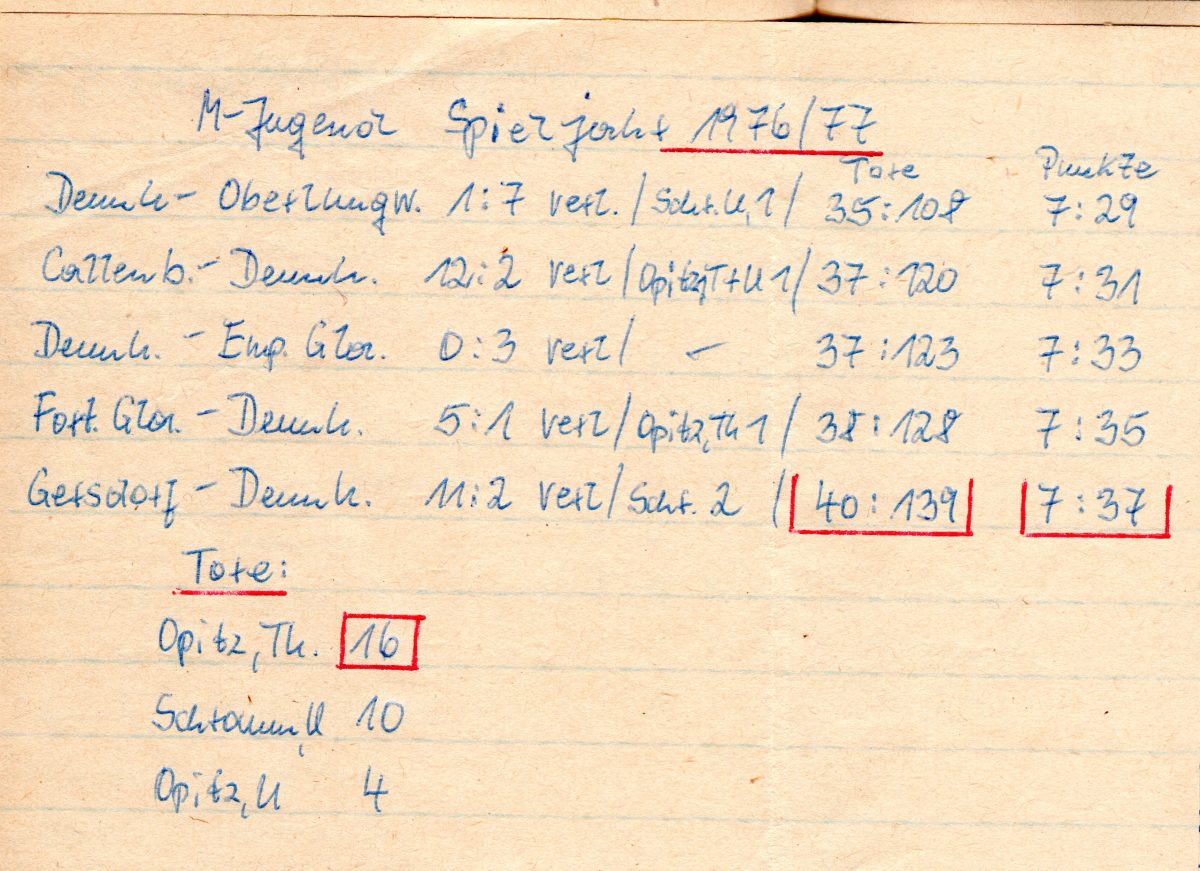 M-Jugend Spieljahr 1976/77
Tore Punkte
Dennh. - Oberlungw. 1:7 verl. / Schr. U, 1 / 35:108 7:29
Callenb. - Dennh. 12:2 verl / Opitz, T+U 1 / 37:120 7:31
Dennh. - Emp. Glau. 0:3 verl / - 37:123 7:33
Fort. Glau. - Dennh. 5:1 verl / Opitz, Th 1 / 38:128 7:35
Gersdorf - Dennh. 11:2 verl / Schr. 2 / 40:139 7:37
Tore:
Opitz, Th. 16
Schramm, U 10
Opitz, U 4